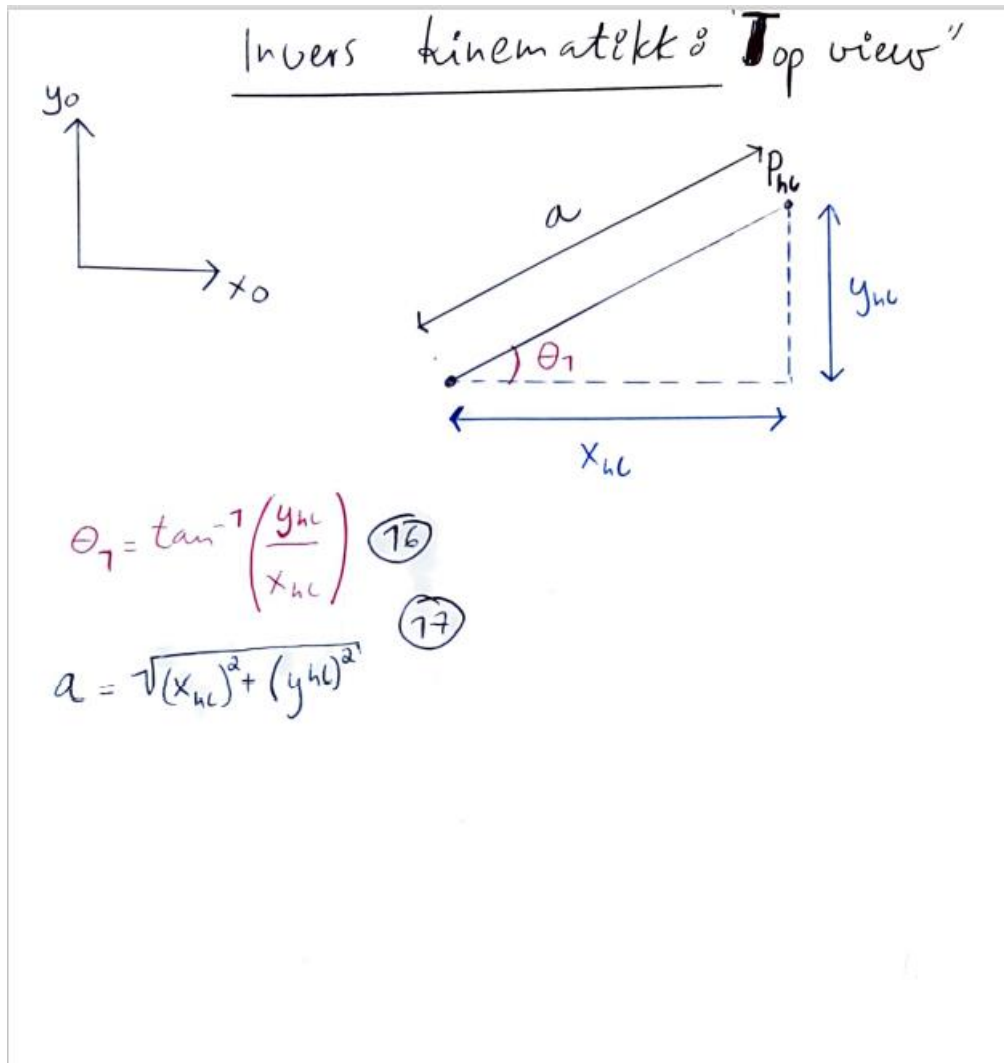 Invers kinematikk: "Top view"
y0
x0
a
Phc
yhc
θ1
xhc
θ1 = tan⁻¹(yhc/xhc) 16
17
a = √(xhc)² + (yhc)²